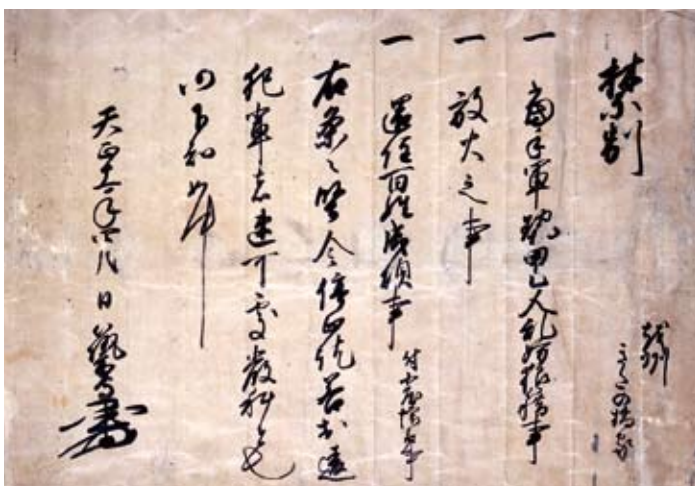 禁制
越州
一 當手軍勢甲乙人乱妨狼藉事
一 放火之事
一 還住百姓成煩事
右条々堅令停止訖若於違
犯輩者速可處厳科者也
仍下知如件
天正十一年四月 日